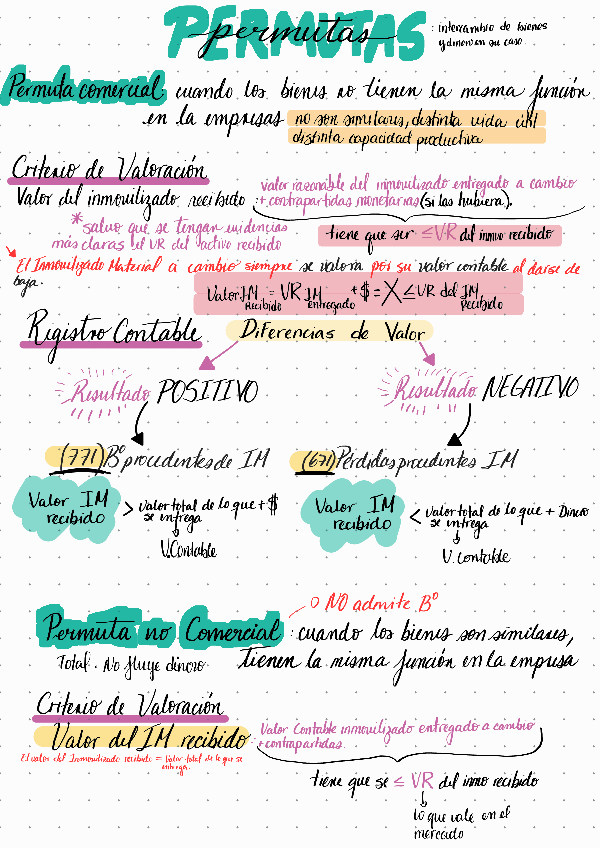 PERMUTAS
permutas
: intercambio de bienes
y dinero en su caso.
Permuta comercial: cuando los bienes no tienen la misma función
en la empresas no son similares, distinta vida útil
distinta capacidad productiva
Criterio de Valoración
Valor del inmovilizado recibido: valor razonable del inmovilizado entregado a cambio
+ contrapartidas monetarias (si las hubiera).
* salvo que se tengan evidencias
más claras el VR del activo recibido
tiene que ser ≤ VR del inmov recibido
El Inmovilizado Material a cambio siempre se valora por su valor contable al darse de
baja.
Valor IM Recibido = VR IM entregado + $ = X ≤ VR del IM Recibido
Registro Contable
Diferencias de Valor
Resultado POSITIVO
Resultado NEGATIVO
(771) Bº procedentes de IM
(671) Pérdidas procedentes IM
Valor IM
recibido
> valor total de lo que + $
se entrega
V.Contable
Valor IM
recibido
< valor total de lo que + Dinero
se entrega
V. contable
NO admite Bº
Permuta no Comercial: cuando los bienes son similares,
Total. No fluye dinero
tienen la misma función en la empresa
Criterio de Valoración
Valor del IM recibido: Valor Contable inmovilizado entregado a cambio
+ contrapartidas.
El valor del Inmovilizado recibido = Valor total de lo que se
entrega.
tiene que se ≤ VR del inmo recibido
lo que vale en el
mercado